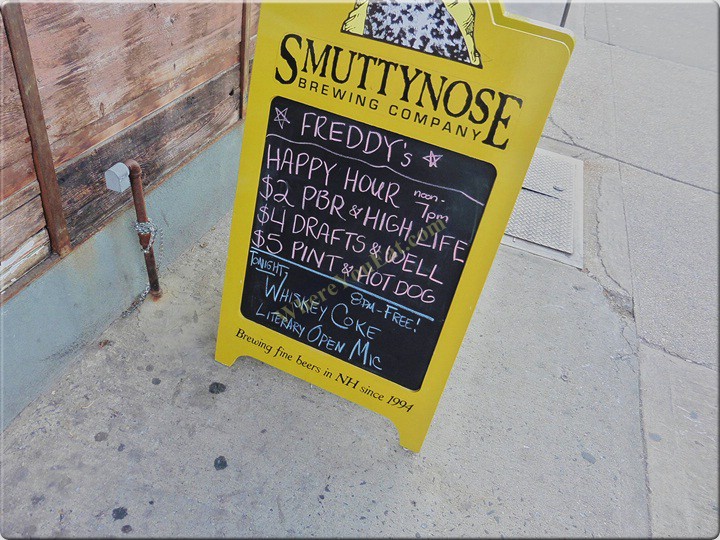 SMUTTYNOSE
BREWING COMPANY
FREDDY's
HAPPY HOUR noon-7pm
$2 PBR & HIGH LIFE
$4 DRAFTS & WELL
$5 PINT & HOT DOG
TONIGHT 8PM-FREE!
WHISKEY COKE
LITERARY OPEN MIC
Brewing fine beers in NH since 1994
WhereYouEat.com